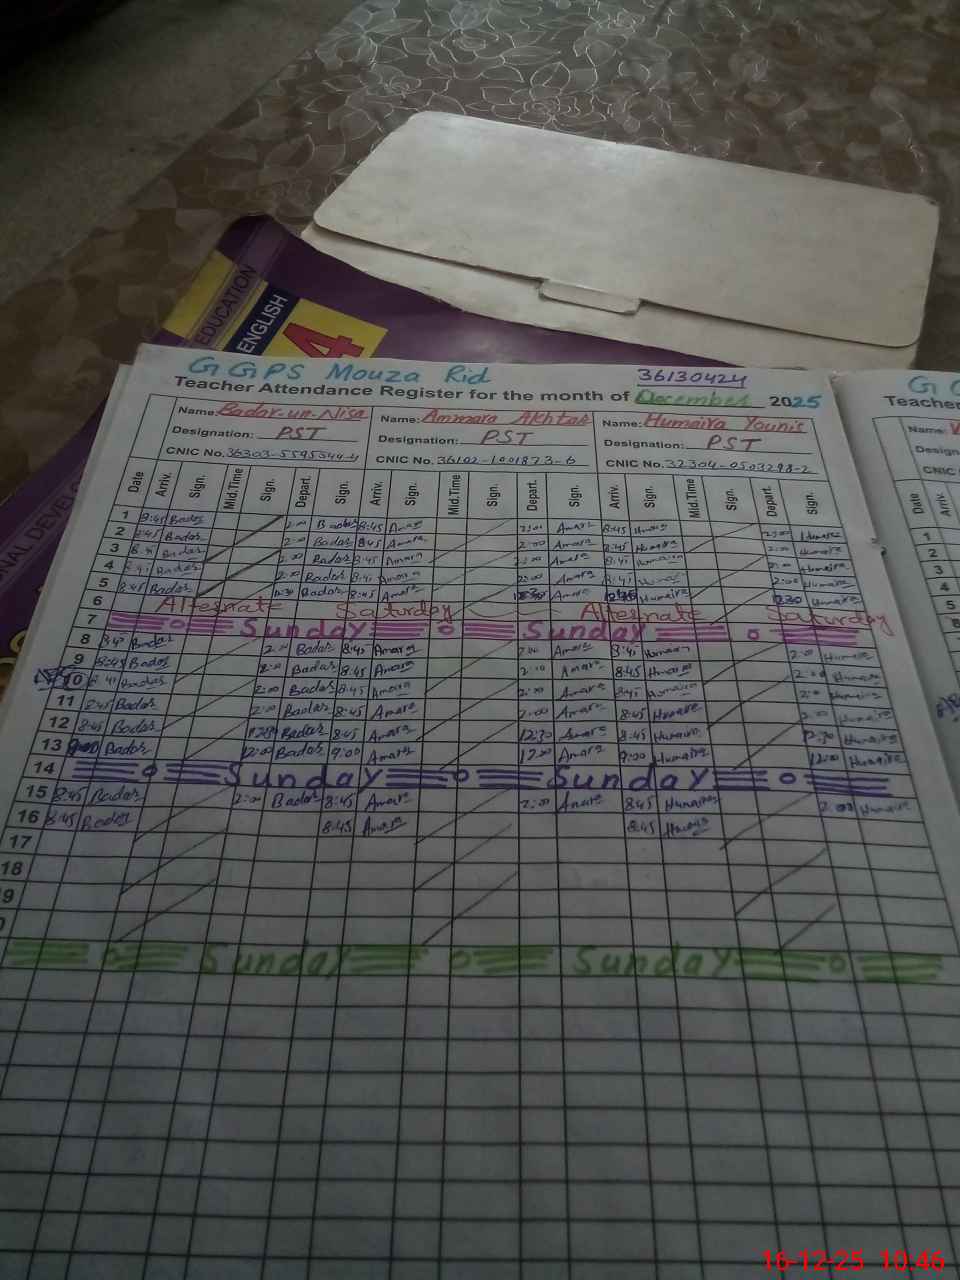 EDUCATION
ENGLISH
4
GGPS Mouza Rid
36130424
Teacher Attendance Register for the month of December 2025
Name: Badar-un-Nisa Name: Ammara Akhtar Name: Humaira Younis
Designation: PST Designation: PST Designation: PST
CNIC No. CNIC No. 36102-1001873-6 CNIC No. 32304-0503298-2
Date Arriv. Sign. Mid.Time Sign. Depart. Sign. Arriv. Sign. Mid.Time Sign. Depart. Sign. Arriv. Sign. Mid.Time Sign. Depart. Sign.
1 8:45 Badar 2:00 Badar 8:45 Amara 2:00 Amara 8:45 Humaira 2:00 Humaira
2 8:45 Badar 2:00 Badar 8:45 Amara 2:00 Amara 8:45 Humaira 2:00 Humaira
3 Badar 2:00 Badar 8:45 Amara 2:00 Amara Humaira 2:00 Humaira
4 Badar 2:00 Badar Amara 2:00 Amara Humaira 2:00 Humaira
5 8:45 Badar Badar 8:45 Amara Amara 12:30 Humaira
6 Alternate Saturday Alternate Saturday
7 Sunday Sunday
8 Badar 2:00 Badar Amara 2:00 Amara Humaira 2:00 Humaira
9 8:45 Badar 2:00 Badar 8:45 Amara 2:00 Amara 8:45 Humaira 2:00 Humaira
10 Badar 2:00 Badar 8:45 Amara 2:00 Amara 8:45 Humaira 2:00 Humaira
11 8:45 Badar 2:00 Badar 8:45 Amara 2:00 Amara 8:45 Humaira 2:00 Humaira
12 8:45 Badar Badar 8:45 Amara 12:30 Amara 8:45 Humaira 12:30 Humaira
13 9:00 Badar 12:00 Badar 9:00 Amara 12:00 Amara 9:00 Humaira 12:00 Humaira
14 Sunday Sunday
15 8:45 Badar 2:00 Badar 8:45 Amara 2:00 Amara 8:45 Humaira 2:00 Humaira
16 8:45 Badar 8:45 Amara 8:45 Humaira
17
18
Sunday Sunday
Teacher
Name:
CNIC
Date
1
2
3
4
5
16-12-25 10.46